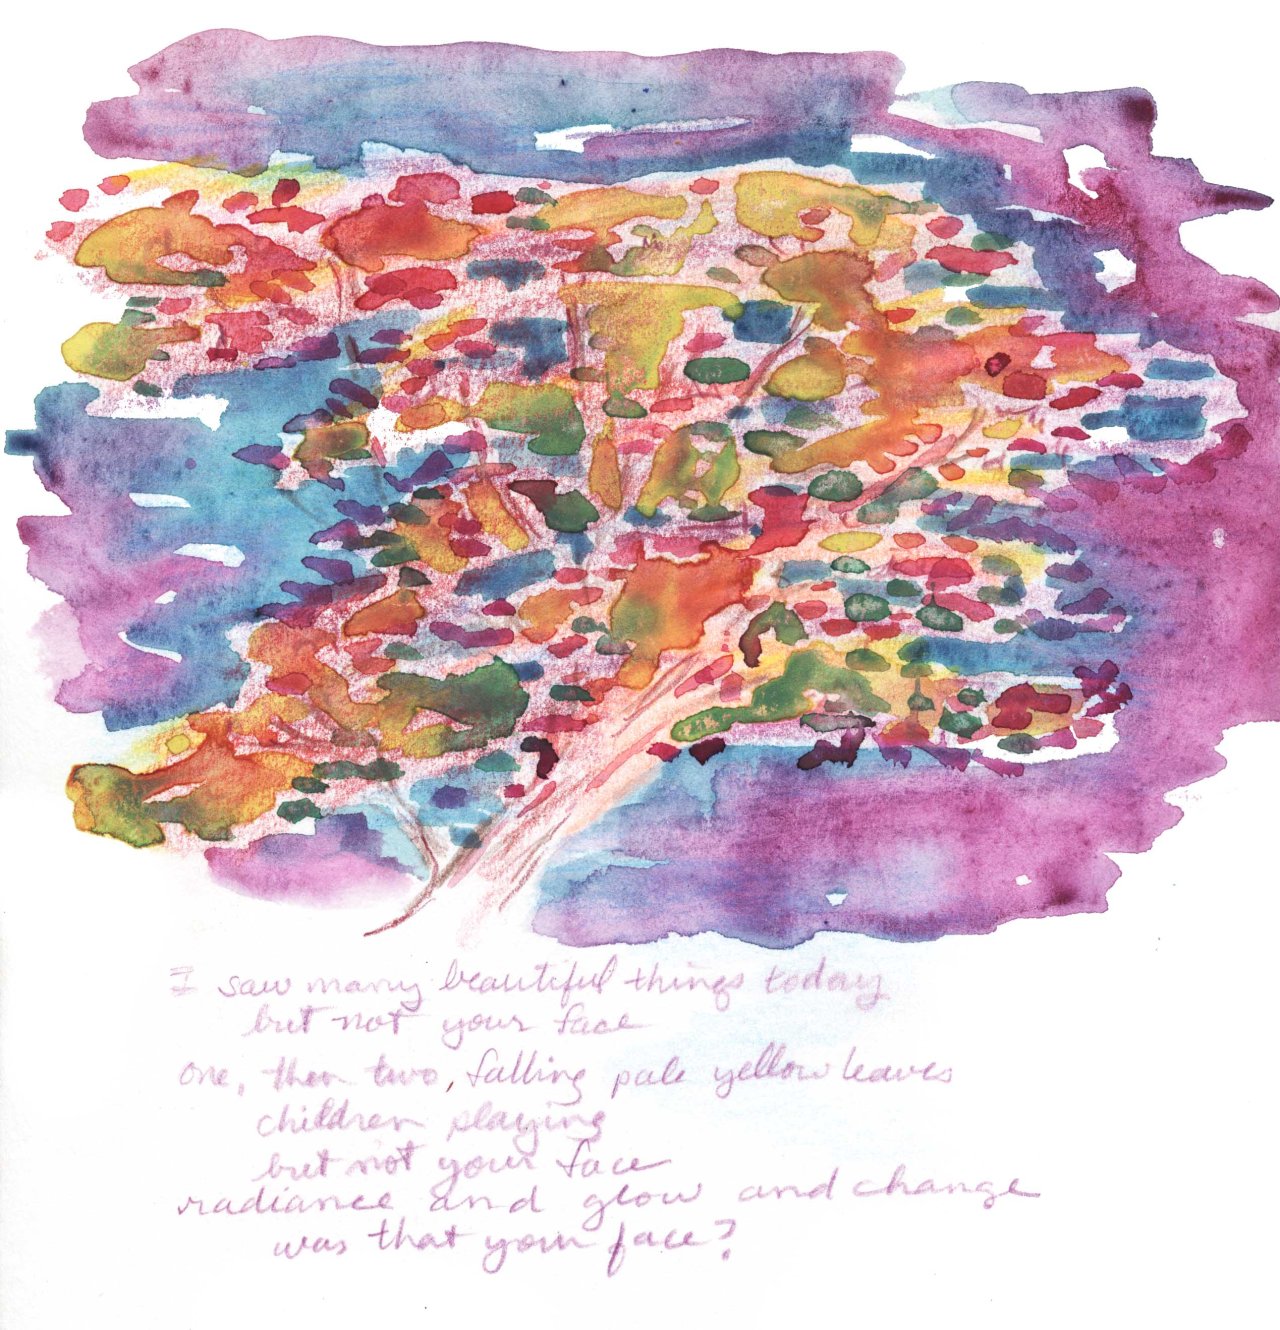 I saw many beautiful things today
but not your face
one, then two, falling pale yellow leaves
children playing
but not your face
radiance and glow and change
was that your face?